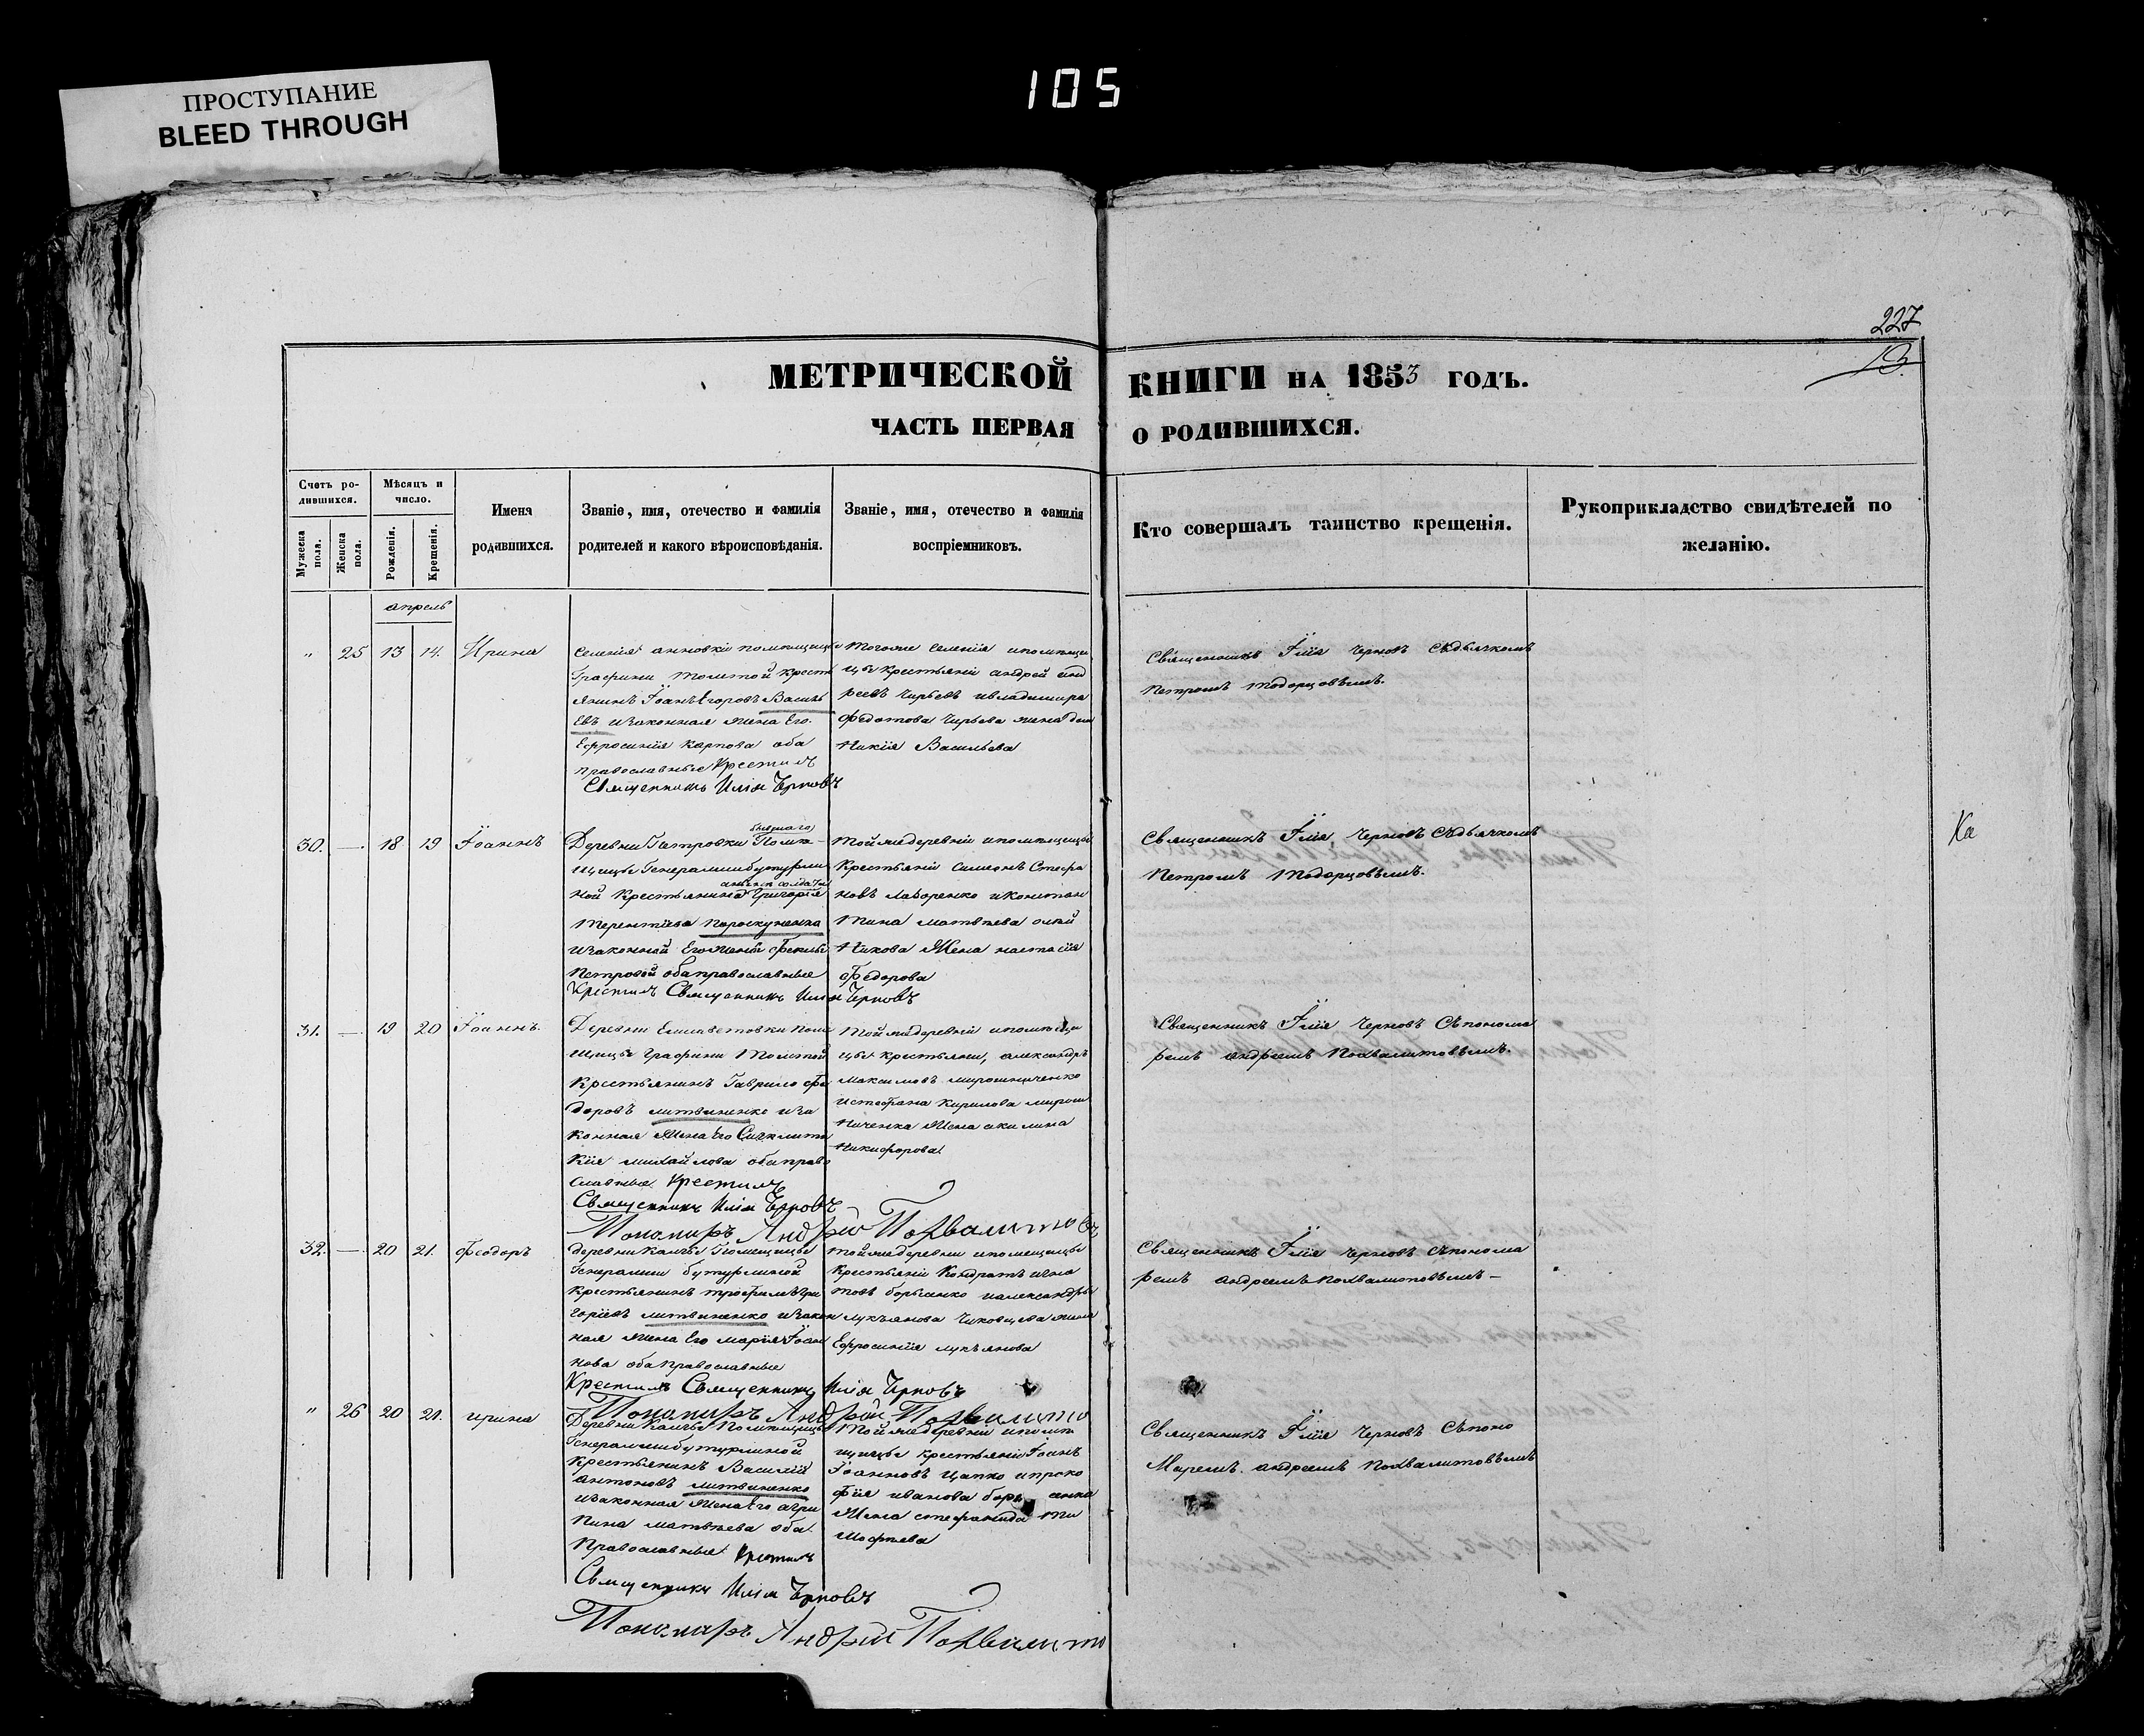 105
ПРОСТУПАНИЕ
BLEED THROUGH
227
13.
МЕТРИЧЕСКОЙ КНИГИ НА 1853 ГОДЪ.
ЧАСТЬ ПЕРВАЯ О РОДИВШИХСЯ.
Счетъ ро-
дившихся.
Мужеска
пола.
Женска
пола.
Мѣсяцъ и
число.
Рожденія.
Крещенія.
Имена
родившихся.
Званіе, имя, отечество и фамилія
родителей и какого вѣроисповѣданія.
Званіе, имя, отечество и фамилія
воспріемниковъ.
Кто совершалъ таинство крещенія.
Рукоприкладство свидѣтелей по
желанію.
апрель
" 25 13 14. Ирина
Селенія анновки помѣщицы
Графини толстой крест
янинъ Іоанъ Егоровъ Василь
Евъ изаконная жена Его
Ефросинія карпова оба
православные Крестилъ
Священникъ Илія Чрновъ
Тогоже селенія ипомѣщи
цы Крестьяни андрей анд
реевъ Чирьевъ ивладимира
Федотова Чирьева жена дом
Никія Васильева
Священникъ Їлія Черновъ Сѣдьячкомъ
Петромъ тодорцовымъ.
30. — 18 19 Їоаннъ
Деревни Петровки бывшаго Помѣ-
щицы Генеральши бутурли
ной Крестьянина Григорія
Терентіева
изаконной Его жены Феклы
Петровой оба православные
Крестилъ Священникъ Илія Чрновъ
Тойжедеревни ипомѣщицы
Крестьяни Симеонъ Стефа
новъ Лаворенко иконстан
тина матвѣева олей
Никова Жена настасія
Федорова
Священникъ Їлія Черновъ Сѣдьячкомъ
Петромъ тодорцовымъ.
Ка
31. — 19 20 Їоаннъ.
Деревни Елисаветовки поме
щицы Графини Толстой
Крестьянинъ Гаврило Фе
доровъ литвиненко иза
конная Жена Его Синклити
кія михайлова оба право
славные Крестилъ
Священникъ Илія Чрновъ
Пономарь Андрей Похвалитовъ
Тойжедеревни ипомѣщи
цы крестьяни, александръ
Максимовъ мирошниченко
истефана Кирилова мирош
Ниченка Жена акилина
Никифорова
Священникъ Їлія Черновъ Сѣпонома
ремъ андреемъ Похвалитовымъ.
32. — 20 21. Феодоръ
деревни Камъы Помещицы
Генеральши бутурлиной
Крестьянинъ трофимъ Гри
горіевъ литвиненко изакон
ная Жена Его Марія Їоан
нова оба православные
Крестилъ Священникъ Илія Чрновъ
Пономарь Андрей Похвалито
тойжедеревни ипомещицы
Крестьяни Кондратъ игна
товъ борисенко иалександры
лукъянова жена
Ефросинія лукъянова
Священникъ Їлія Черновъ Сѣпонома
ремъ андреемъ похвалитовымъ —
" 26 20 21. ирина
Деревни Камъы Помѣщицы
Генеральши бутурлиной
Крестьянинъ Василій
антоновъ литвиненко
изаконная Жена Его агри
пина матвѣева оба
Православные Крестилъ
Священникъ Илія Чрновъ
Пономарь Андрей Похвалито
Тойжедеревни ипомѣ
щицы крестьяни Їоанъ
Їоанновъ Цапко ипроко
фія иванова
Жена стефанида ти
мофѣева
Священникъ Їлія Черновъ Сѣпоно
Маремъ. андреемъ похвалитовымъ